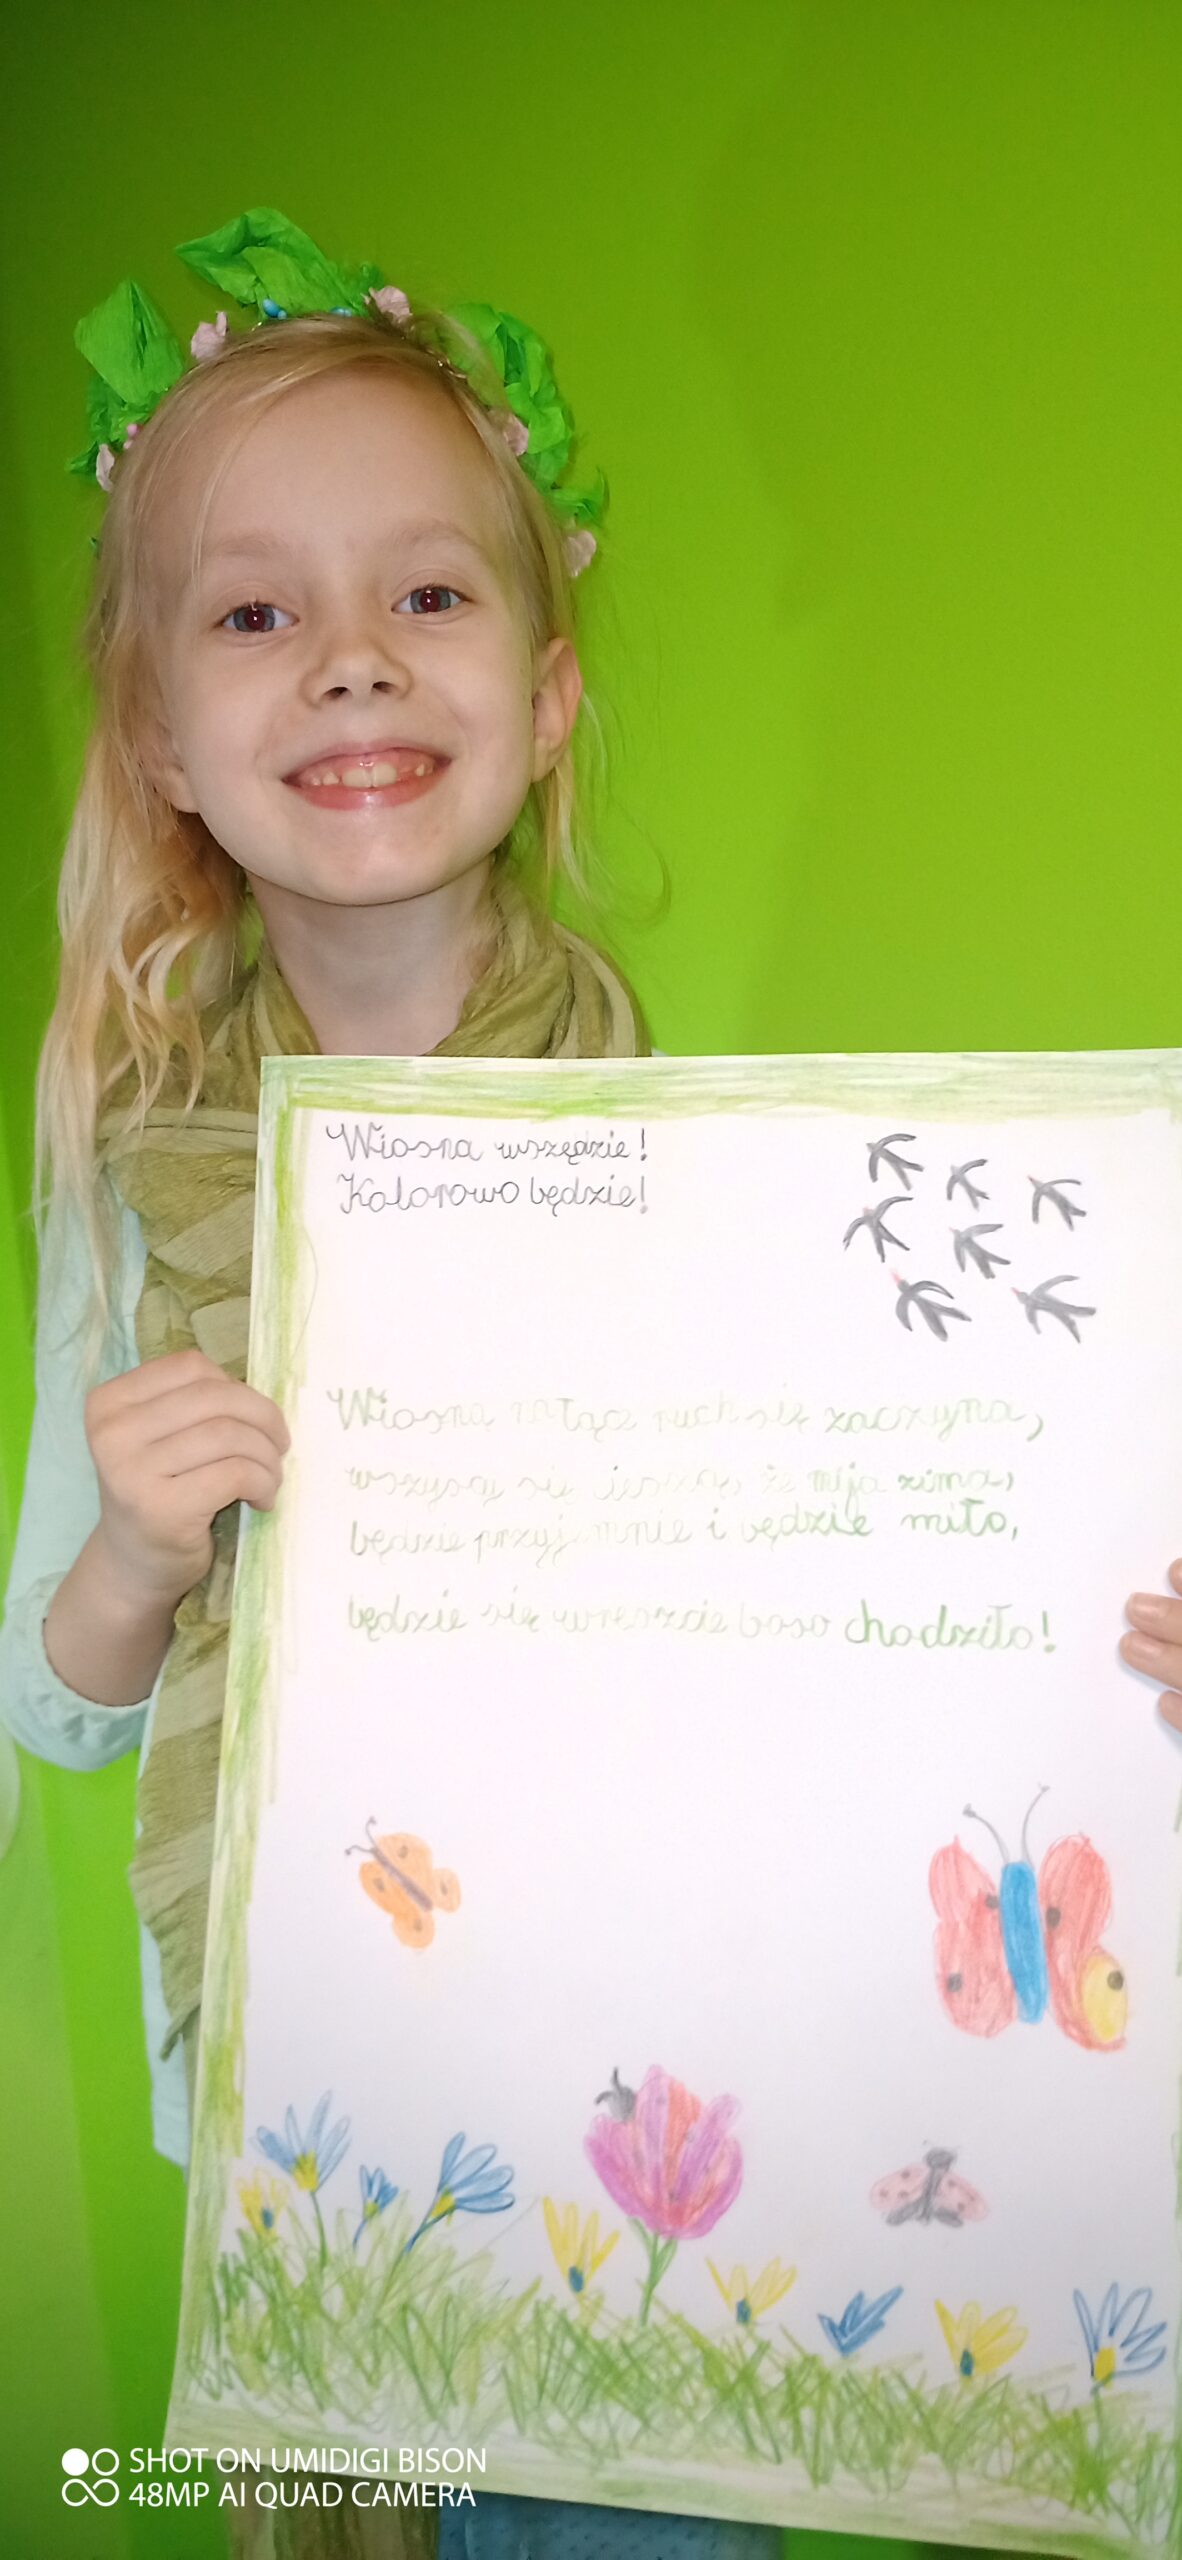 Wiosna wszędzie!
Kolorowo będzie!
Wiosną na łące ruch się zaczyna,
wszyscy się cieszą, że mija zima,
będzie przyjemnie i będzie miło,
będzie się wreszcie boso chodziło!
SHOT ON UMIDIGI BISON
48MP AI QUAD CAMERA